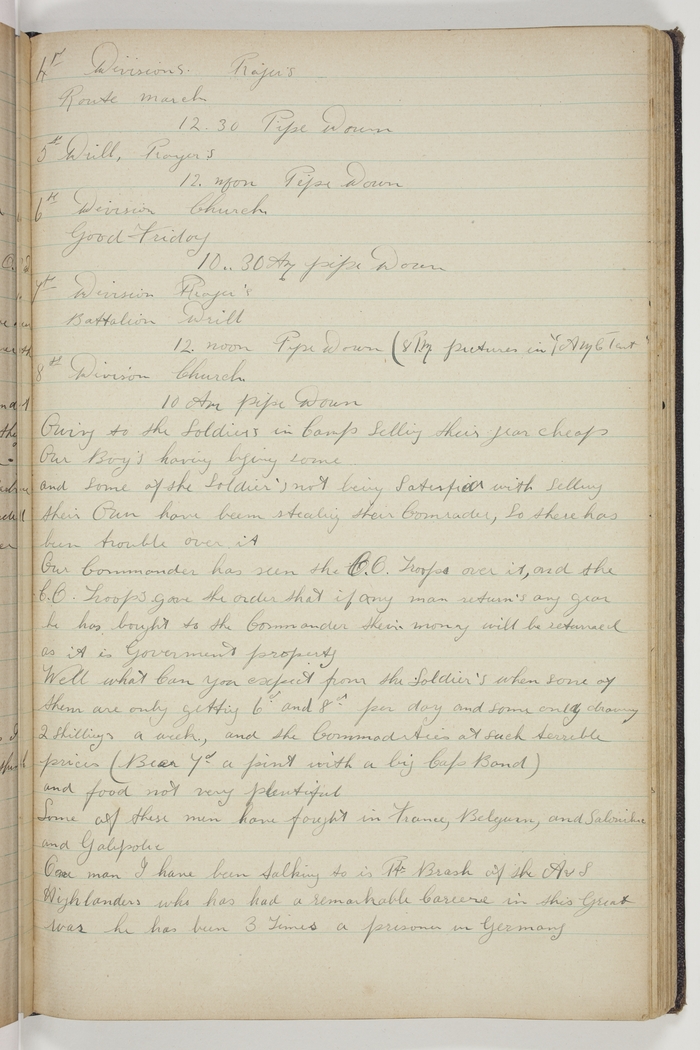 4th Divisions. Prayer's
Route march
12.30 Pipe Down
5th Drill, Prayer's
12. noon Pipe Down
6th Division Church
Good Friday
10..30 Am pipe Down
7th Division Prayer's
Battalion Drill
12. noon Pipe Down (8 Pm pictures in Y M C Tent
8th Divison Church
10 Am pipe Down
Owing to the Soldiers in Camp Sellig their gear cheap
Our Boy's having bying some
and Some of the Soldier's not being Satisfied with Selling
their Own have been stealing their Comrades, So there has
been trouble over it
Our Commander has seen the C.O. Troops over it, and the
C.O. Troops gave the order that if any man return's any gear
he has bought to the Commander their money will be returned
as it is Goverment property
Well what Can you expect from the Soldier's when some of
them are only gettig 6d and 8d per day and some only drawing
2 shillings a week, and the Commadities at such terrible
prices (Beer 7d a pint with a big Cap Band)
and food not very plentiful
Some of these men have fought in France, Belgium, and Salonika
and Galipolie
One man I have been talking to is Pte Brash of the A & S
Highlanders who has had a remarkable Careere in this Great
War he has been 3 Times a prisoner in Germany